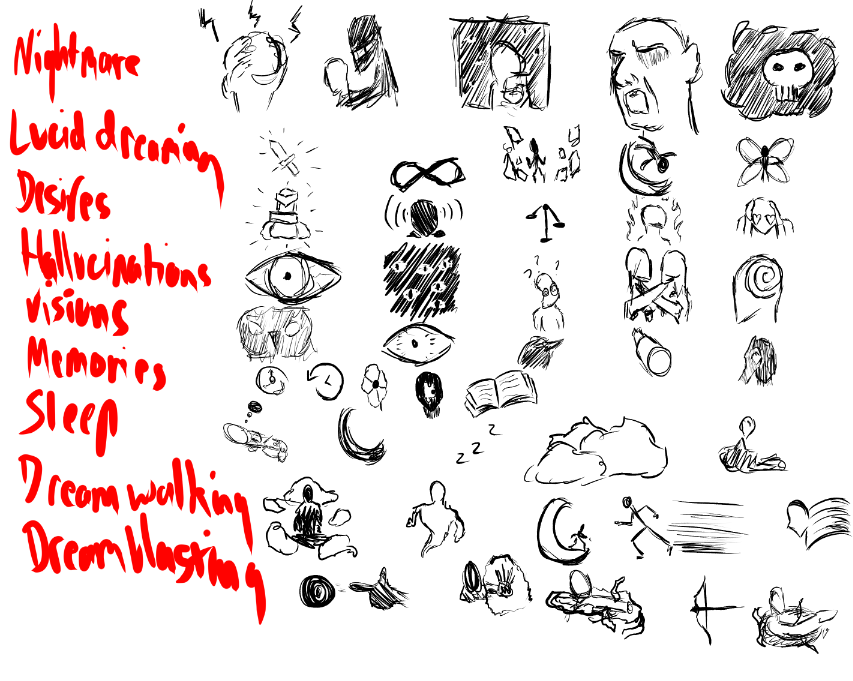 Nightmare
Lucid dreaming
Desires
Hallucinations
visions
Memories
Sleep
z z z
Dream walking
Dream blasting